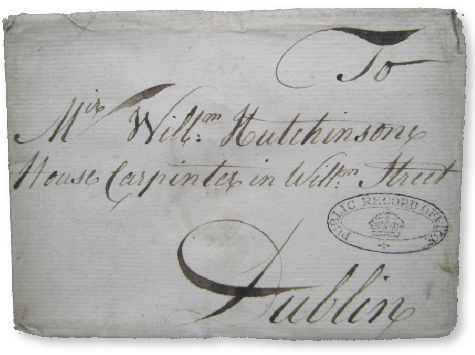 To
Mr Willm: Hutchinson
House Carpinter in Willm: Street
PUBLIC RECORD OFFICE
Dublin